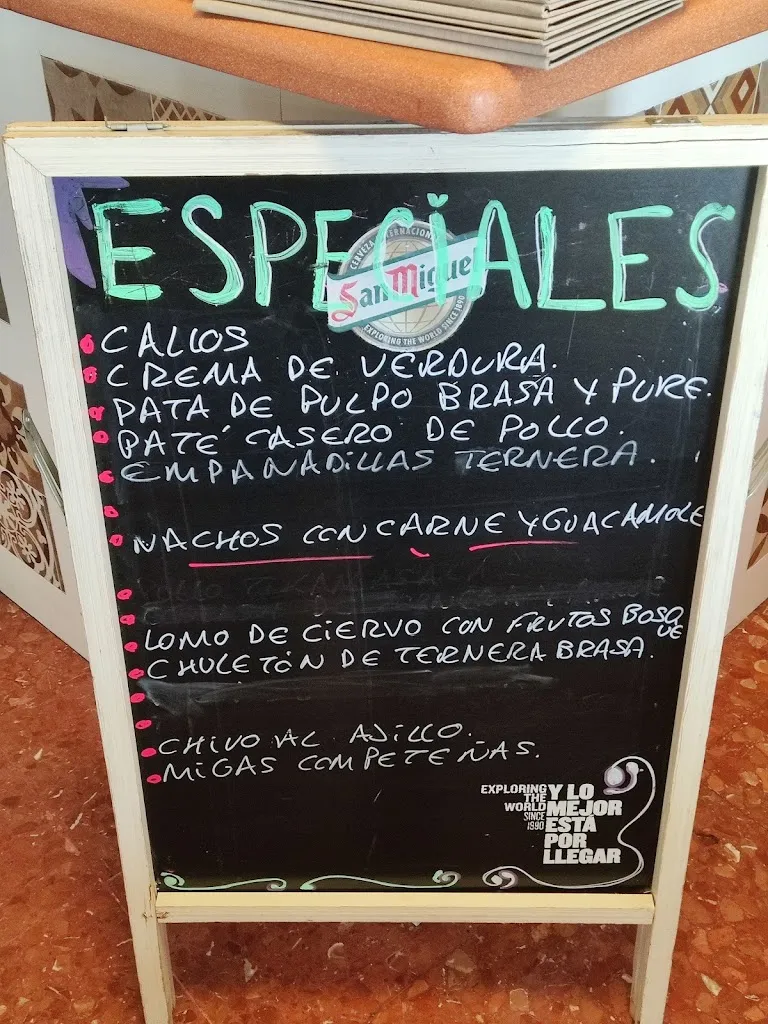 ESPECIALES
CERVEZA INTERNACIONAL
San Miguel
EXPLORING THE WORLD SINCE 1890
CALLOS
CREMA DE VERDURA.
PATA DE PULPO BRASA Y PURE.
PATÉ CASERO DE POLLO.
EMPANADILLAS TERNERA.
NACHOS CON CARNE Y GUACAMOLE
LOMO DE CIERVO CON FRUTOS BOSQUE
CHULETÓN DE TERNERA BRASA.
CHIVO AL AJILLO.
MIGAS COMPETEÑAS.
EXPLORING
THE
WORLD
SINCE
1890
Y LO
MEJOR
ESTÁ
POR
LLEGAR